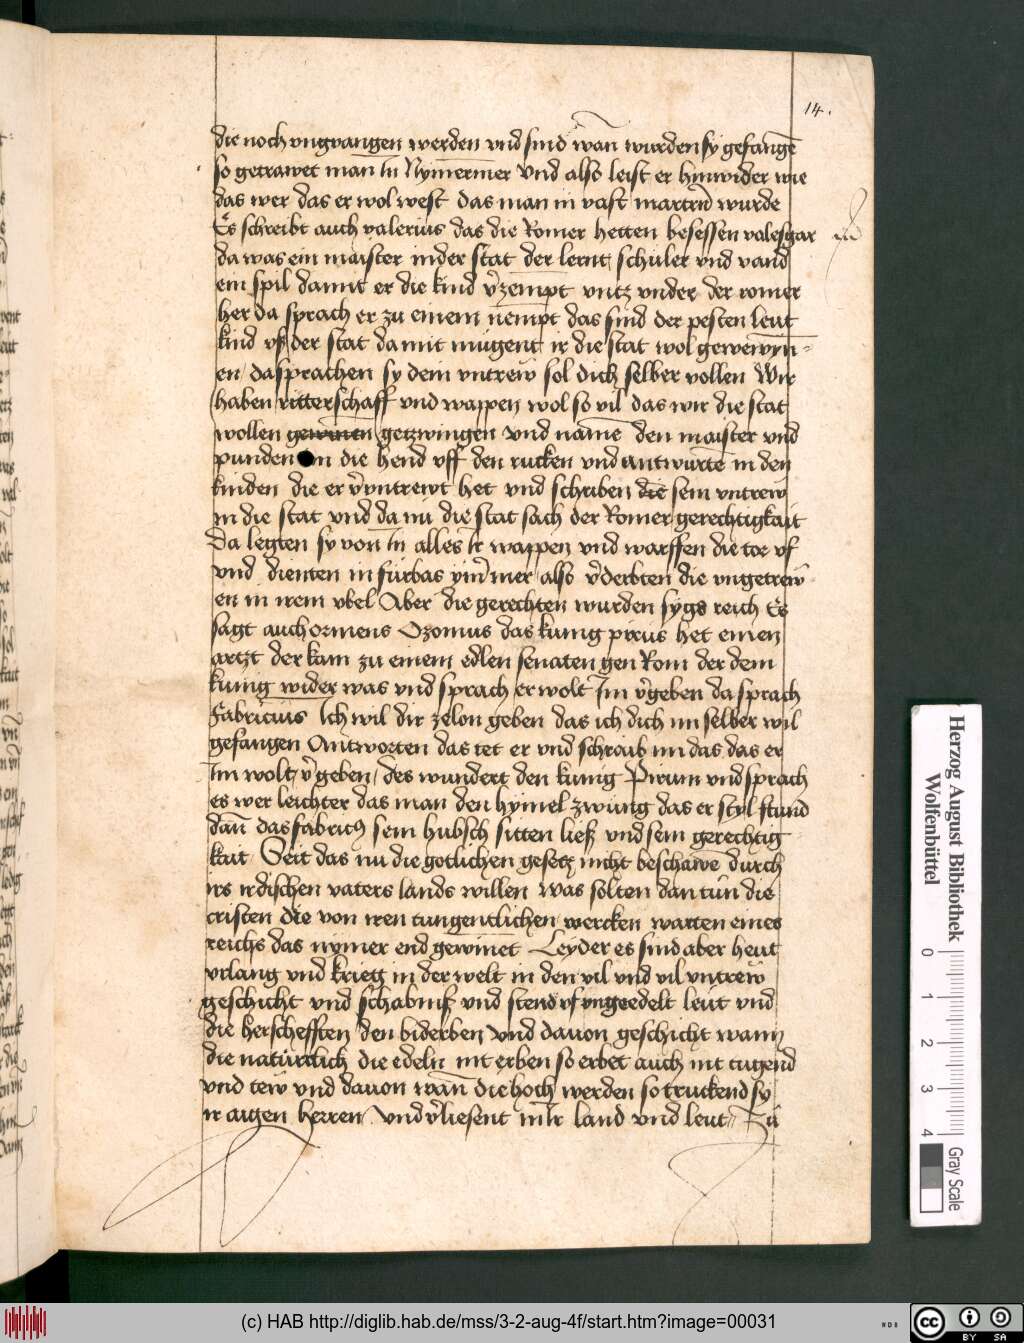 14.
die noch vngvangen werden vnd sind wan̄ wurden sy gefangē
so getrawet man in Nymermer Vnd also leist er hinwider wie
das wer das er wol west das man in vast martrn̄ wurde
Es schreibt auch valerius das die Romer hetten besessen valesgar
da was ein maister in der stat der lernt schuler vnd vand
ein spil damit er die kind v̄zempt vntz vnder der romer
her da sprach er zu einem nempt das sind der pesten leut
kind vß der stat da mit mügent ir die stat wol gewewyn=
en / da sprachen sy dem vntrew sol dich selber vollen Wir
haben ritterschaff vnd wappen wol so vil das wir die stat
wollen gewinen getzwingen vnd name den maister vnd
punden im die hend vff den rucken vnd antwurte in den
kinden die er v̄vntrewt het vnd schriben die sein vntrew
in die stat vnd da nu die stat sach der Romer gerechtigkait
Da legten sy von in alles ir wappen vnd warffen die tor vf
vnd dienten in fürbas ym̄mer also v̄derbten die vngetrew
en in irem vbel Aber die gerechten wurden sygs reich Es
sagt auch ormens Ozomus das kunig pirus het einen
artzt der kam zu einem edlen senaten gen Rom der dem
kunig wider was vnd sprach er wolt Im v̄geben da sprach
Fabricius Ich wil dir zelon geben das ich dich im selber wil
gefangen Antworten das tet er vnd schraib im das das er
Im wolt v̄geben / des wundert den kunig Pirum vnd sprach
es wer leichter das man den hymel zwung das er styl stund
dan̄ das fabricꝰ sein hubsch sitten ließ vnd sein gerechtig
kait Seit das nu die gotlichen gesetz nicht beschawe durch
irs irdischen vaters lands willen was solten dan tün die
cristen die von iren tungentlichen wercken warten eines
reichs das nymer end gewinet Leyder es sind aber heut
vrlang vnd krieg in der welt in den vil vnd vil vntrew
geschicht vnd schabniß vnd stend vf vngeedelt leut vnd
die herschefften den biderben vnd dauon geschicht wann
die naturlich die edeln nit erben so erbet auch nit tugend
vnd tew vnd dauon wan̄ die hoch werden so truckend sy
ir aigen herren Vnd v̄liesent mit land vnd leut Zü
Herzog August Bibliothek
Wolfenbüttel
0 1 2 3 4
Gray Scale
(c) HAB http://diglib.hab.de/mss/3-2-aug-4f/start.htm?image=00031
WDB
cc BY SA